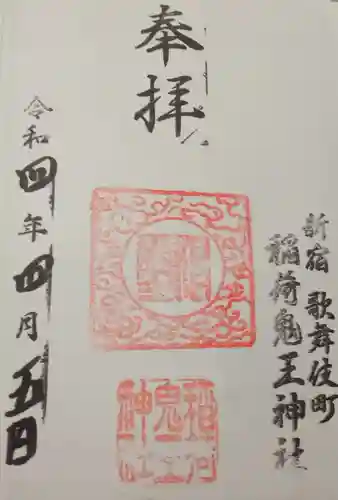 奉拝
新宿 歌舞伎町
稲荷鬼王神社
令和四年四月五日
稲荷
鬼王
神社